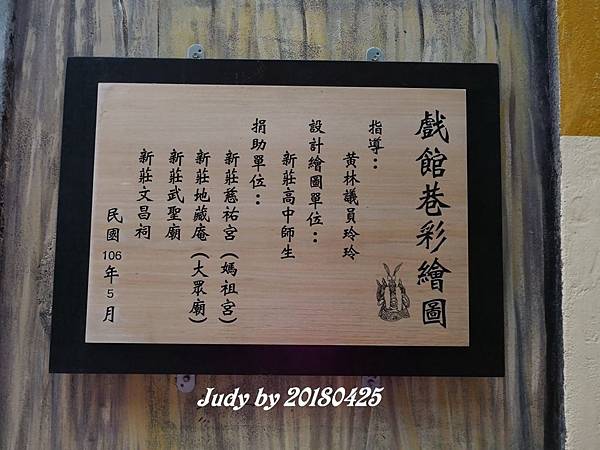 戲館巷彩繪圖
指導：
黃林議員玲玲
設計繪圖單位：
新莊高中師生
捐助單位：
新莊慈祐宮（媽祖宮）
新莊地藏庵（大眾廟）
新莊武聖廟
新莊文昌祠
民國106年5月
Judy by 20180425